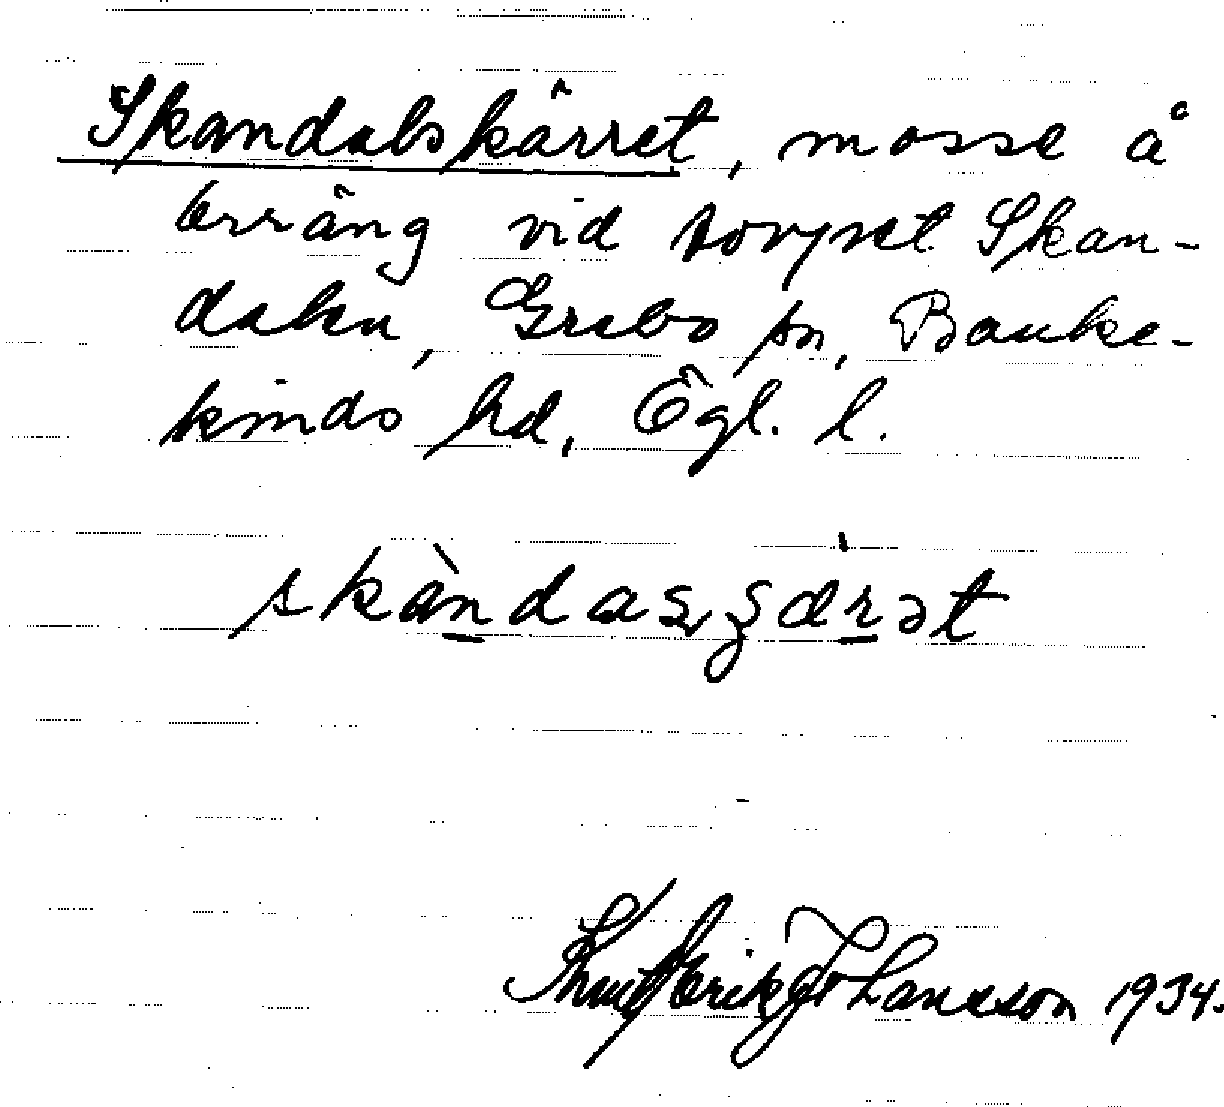 Skandalskärret, mosse å
terräng vid torpet Skan-
dalen, Grebo sn, Banke-
kinds hd, Ögl. l.
Knut Erik Johansson 1934.